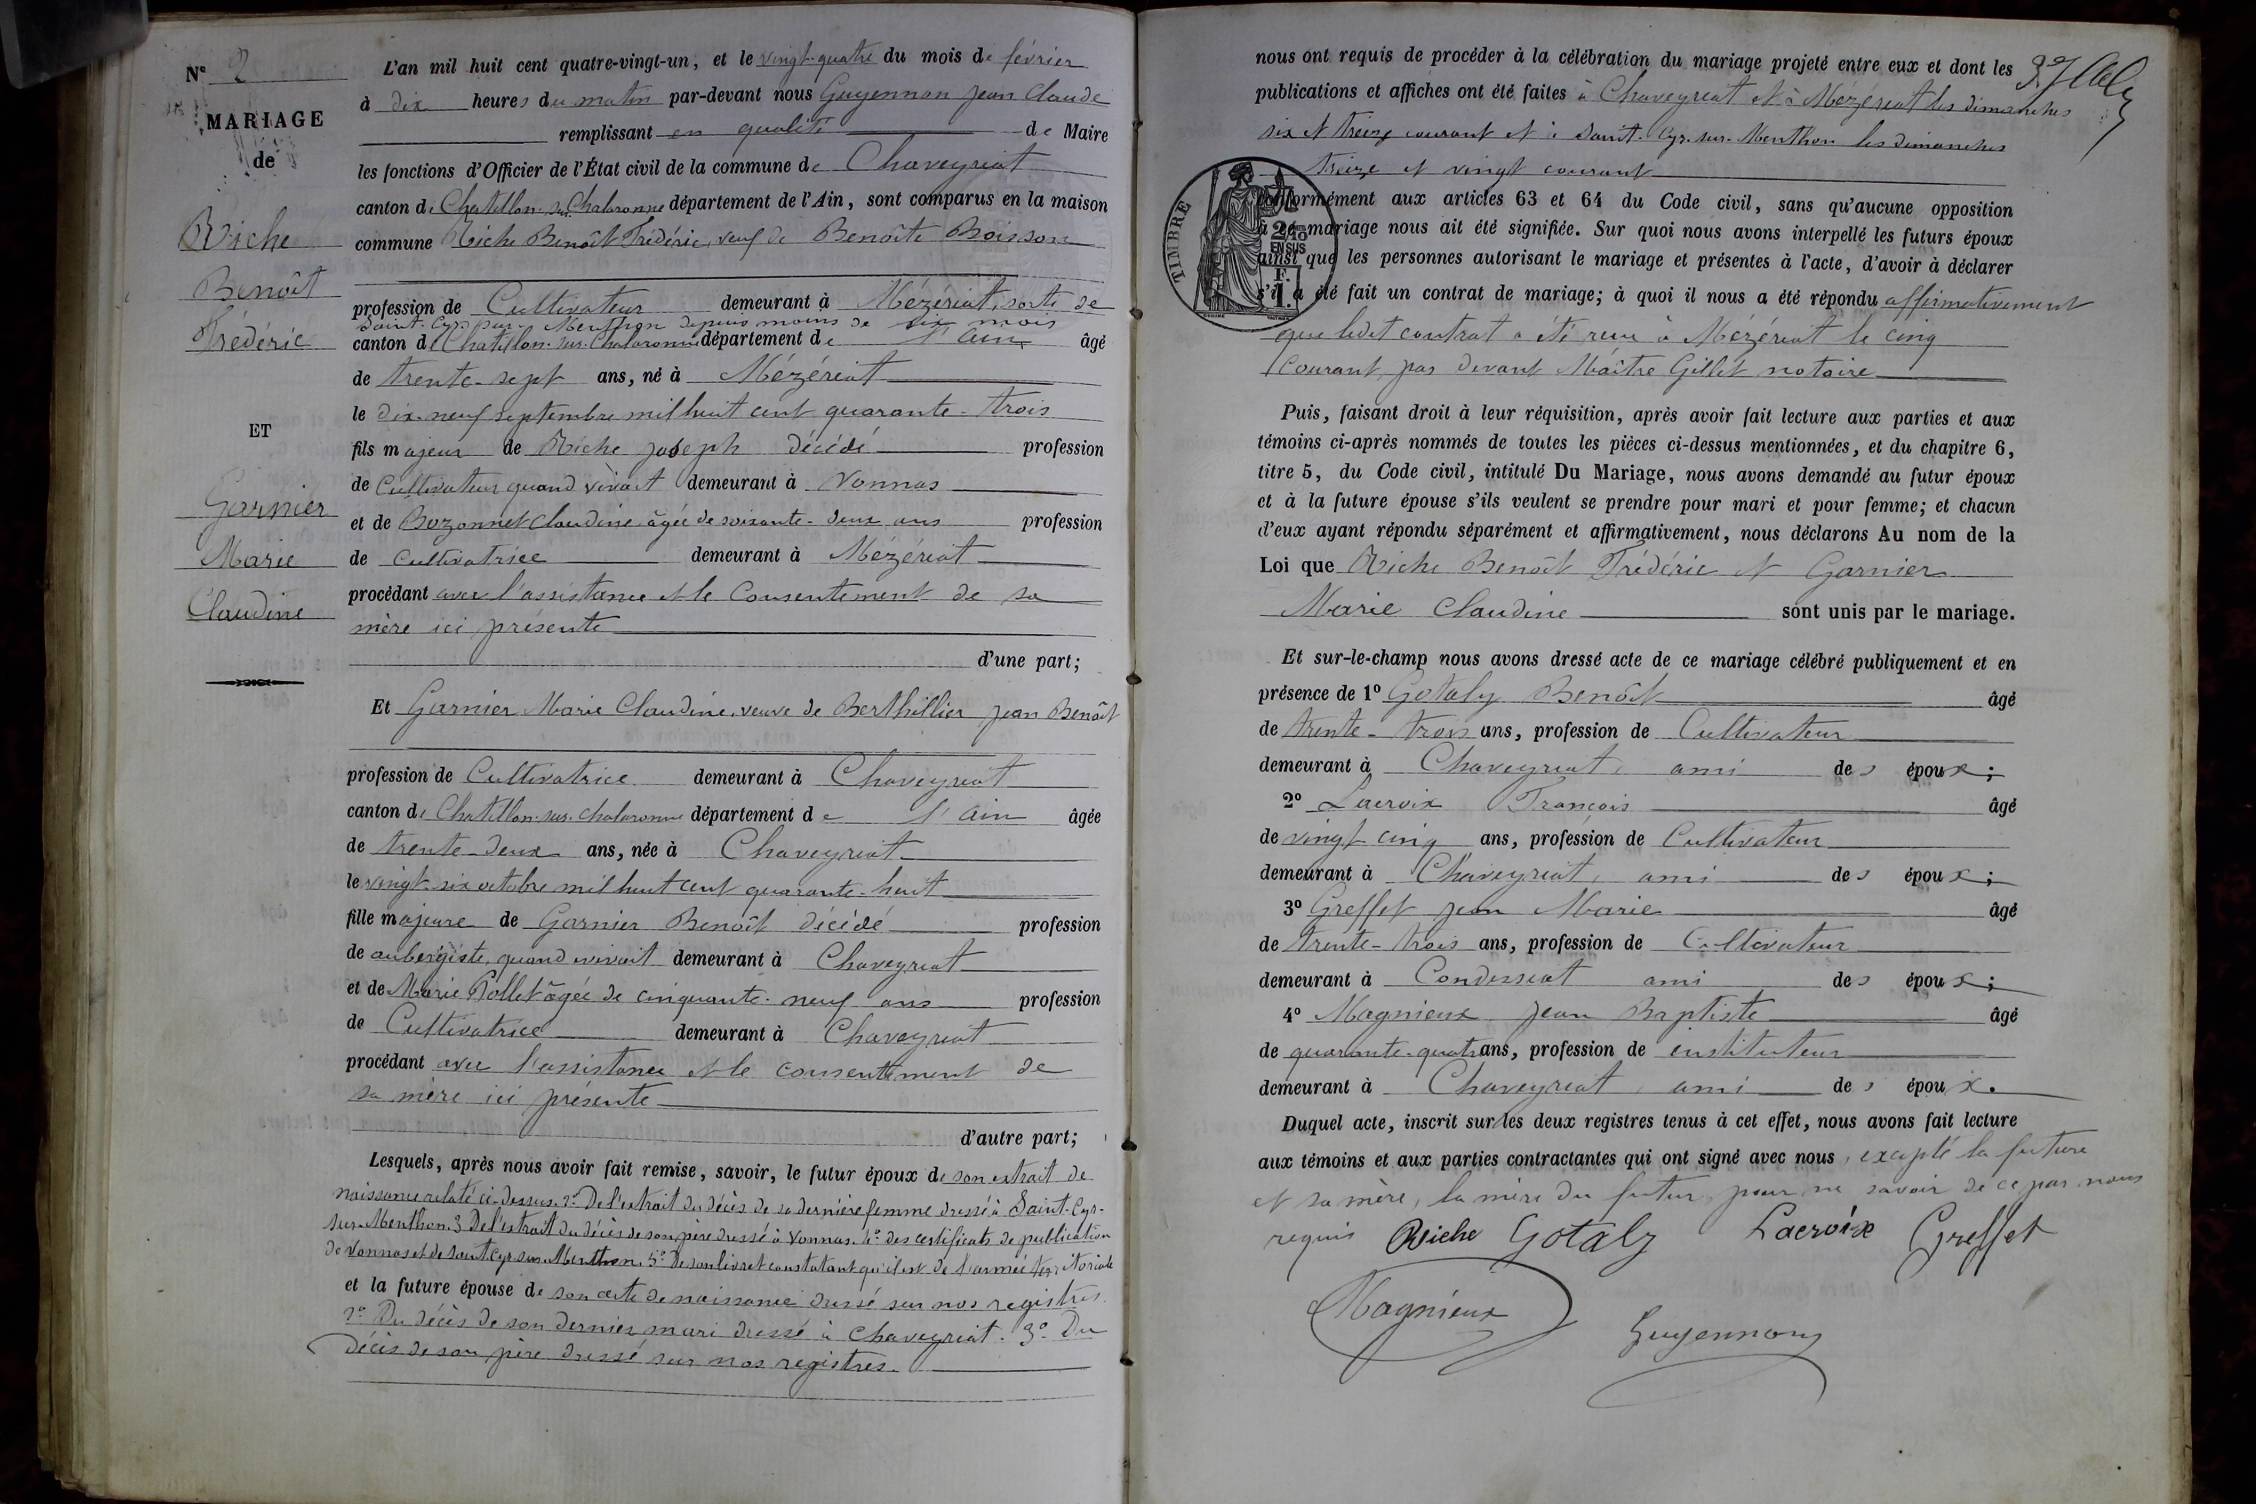 N° 2
MARIAGE
de
Riche
Benoît
Frédéric
ET
Garnier
Marie
Claudine
L'an mil huit cent quatre-vingt-un, et le vingt-quatre du mois de février
à dix heures du matin par-devant nous Guyennon Jean Claude
remplissant en qualité de Maire
les fonctions d'Officier de l'État civil de la commune de Chaveyriat
canton de Chatillon-sur-Chalaronne département de l'Ain, sont comparus en la maison
commune Riche Benoît Frédéric, veuf de Benoîte Boisson
profession de Cultivateur demeurant à Mézériat, sorti de
Saint-Cyr-sur-Menthon depuis moins de six mois
canton de Chatillon-sur-Chalaronne département de l'Ain âgé
de trente-sept ans, né à Mézériat
le dix-neuf septembre mil huit cent quarante-trois
fils majeur de Riche Joseph décédé profession
de Cultivateur quand vivait demeurant à Vonnas
et de Bozonnet Claudine âgée de soixante-deux ans profession
de cultivatrice demeurant à Mézériat
procédant avec l'assistance et le Consentement de sa
mère ici présente
d'une part;
Et Garnier Marie Claudine, veuve de Berthillier Jean Benoît
profession de Cultivatrice demeurant à Chaveyriat
canton de Chatillon-sur-Chalaronne département de l'Ain âgée
de trente-deux ans, née à Chaveyriat
le vingt-six octobre mil huit cent quarante-huit
fille majeure de Garnier Benoît décédé profession
de aubergiste, quand vivait demeurant à Chaveyriat
et de Marie Pollet âgée de cinquante-neuf ans profession
de Cultivatrice demeurant à Chaveyriat
procédant avec l'assistance et le consentement de
sa mère ici présente
d'autre part;
Lesquels, après nous avoir fait remise, savoir, le futur époux de son extrait de
naissance relaté ci-dessus. 2° De l'extrait du décès de sa dernière femme dressé à Saint-Cyr-
sur-Menthon. 3° De l'extrait du décès de son père dressé à Vonnas. 4° des certificats de publication
de Vonnas et de Saint-Cyr-sur-Menthon. 5° De son livret constatant qu'il est de l'armée territoriale
et la future épouse de son acte de naissance dressé sur nos registres.
2° Du décès de son dernier mari dressé à Chaveyriat. 3° Du
décès de son père dressé sur nos registres.
nous ont requis de procéder à la célébration du mariage projeté entre eux et dont les
publications et affiches ont été faites à Chaveyriat et à Mézériat les dimanches
six et treize courant et à Saint-Cyr-sur-Menthon les dimanches
treize et vingt courant
TIMBRE
2/10 EN SUS
F. 1.
conformément aux articles 63 et 64 du Code civil, sans qu'aucune opposition
à ce mariage nous ait été signifiée. Sur quoi nous avons interpellé les futurs époux
ainsi que les personnes autorisant le mariage et présentes à l'acte, d'avoir à déclarer
s'il a été fait un contrat de mariage; à quoi il nous a été répondu affirmativement
que ledit contrat a été reçu à Mézériat le cinq
Courant, par devant Maître Gillet notaire
Puis, faisant droit à leur réquisition, après avoir fait lecture aux parties et aux
témoins ci-après nommés de toutes les pièces ci-dessus mentionnées, et du chapitre 6,
titre 5, du Code civil, intitulé Du Mariage, nous avons demandé au futur époux
et à la future épouse s'ils veulent se prendre pour mari et pour femme; et chacun
d'eux ayant répondu séparément et affirmativement, nous déclarons Au nom de la
Loi que Riche Benoît Frédéric et Garnier
Marie Claudine sont unis par le mariage.
Et sur-le-champ nous avons dressé acte de ce mariage célébré publiquement et en
présence de 1° Gotaly Benoît âgé
de trente-trois ans, profession de Cultivateur
demeurant à Chaveyriat, ami des époux;
2° Lacroix François âgé
de vingt-cinq ans, profession de Cultivateur
demeurant à Chaveyriat, ami des époux;
3° Greffet Jean Marie âgé
de trente-trois ans, profession de Cultivateur
demeurant à Condessiat ami des époux;
4° Magnieux Jean Baptiste âgé
de quarante-quatre ans, profession de instituteur
demeurant à Chaveyriat, ami des époux.
Duquel acte, inscrit sur les deux registres tenus à cet effet, nous avons fait lecture
aux témoins et aux parties contractantes qui ont signé avec nous, excepté la future
et sa mère, la mère du futur, pour ne savoir de ce par nous
requis Riche Gotaly Lacroix Greffet
Magnieux
Guyennon